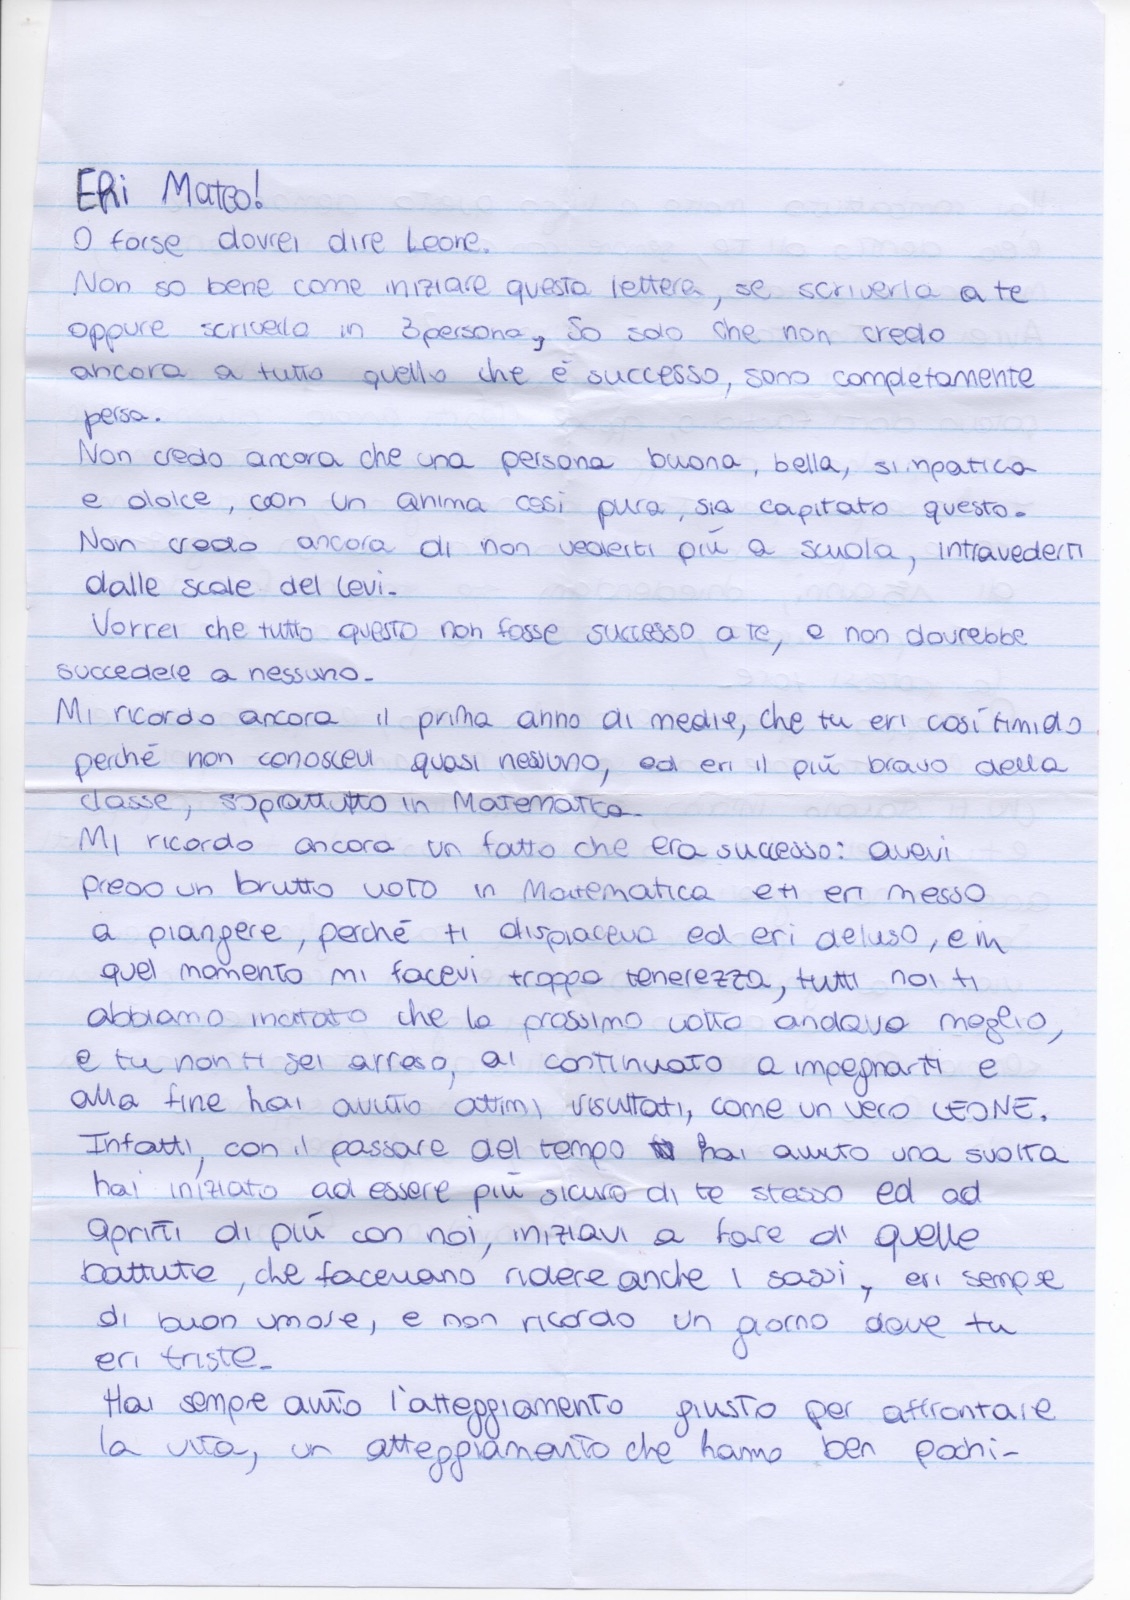 EHi Matteo!
O forse dovrei dire Leone.
Non so bene come iniziare questa lettera, se scriverla a te
oppure scriverla in 3persona, So solo che non credo
ancora a tutto quello che é successo, sono completamente
persa.
Non credo ancora che una persona buona, bella, simpatica
e dolce, con un anima così pura, sia capitato questo.
Non credo ancora di non vederti piú a scuola, intravederti
dalle scale del Levi.
Vorrei che tutto questo non fosse successo a te, e non dovrebbe
succedere a nessuno.
Mi ricordo ancora il prima anno di medie, che tu eri così timido
perché non conoscevi quasi nessuno, ed eri il piú bravo della
classe, soprattutto in Matematica.
Mi ricordo ancora un fatto che era successo: avevi
preso un brutto voto in Matematica e ti eri messo
a piangere, perché ti dispiaceva ed eri deluso, e in
quel momento mi facevi troppa tenerezza, tutti noi ti
abbiamo incitato che lo prossimo voto andava meglio,
e tu non ti sei arreso, ai continuato a impegnarti e
alla fine hai avuto ottimi risultati, come un vero LEONE.
Infatti, con il passare del tempo hai avuto una svolta
hai iniziato ad essere piú sicuro di te stesso ed ad
aprirti di piú con noi, iniziavi a fare di quelle
battute, che facevano ridere anche i sassi, eri sempre
di buon umore, e non ricordo un giorno dove tu
eri triste.
Hai sempre avuto l'atteggiamento giusto per affrontare
la vita, un atteggiamento che hanno ben pochi.